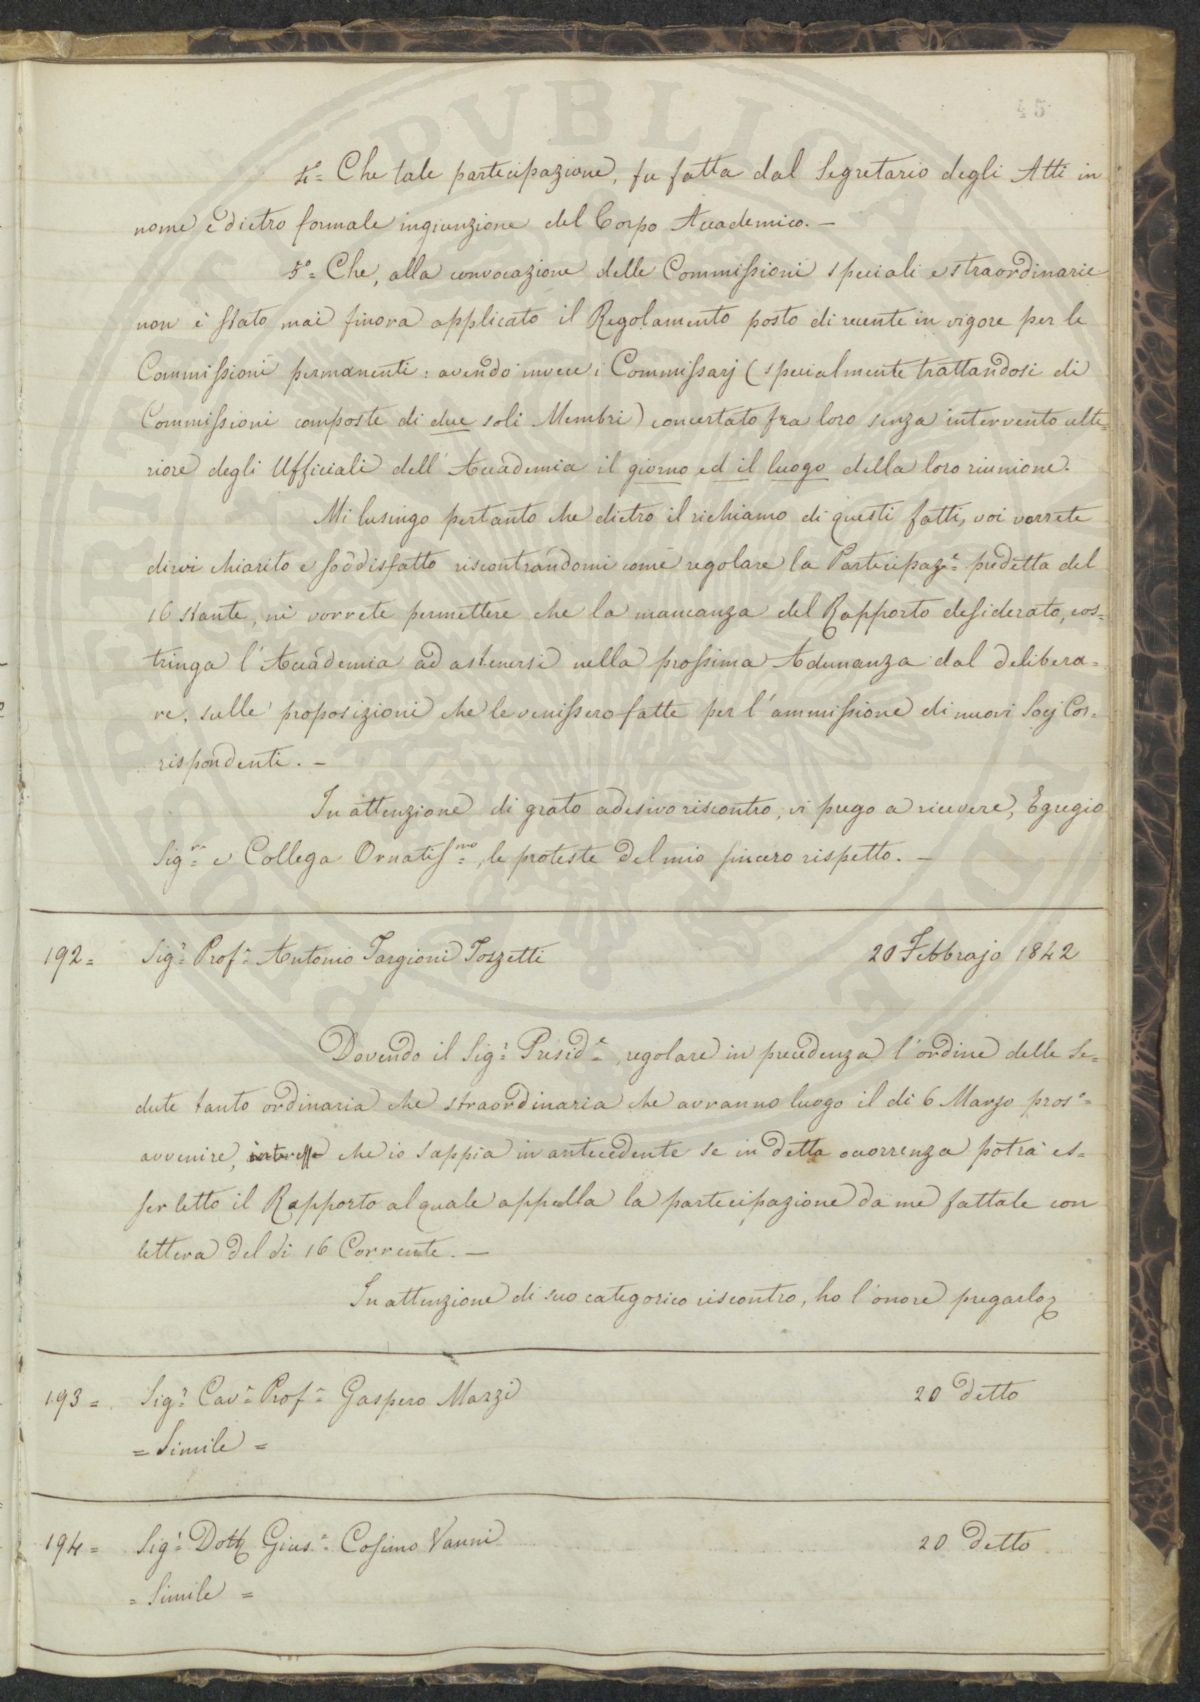 45
4.° = Che tale partecipazione, fu fatta dal Segretario degli Atti in
nome e dietro formale ingiunzione del Corpo Accademico. —
5.° = Che, alla convocazione delle Commissioni speciali e straordinarie
non è stato mai finora applicato il Regolamento posto di recente in vigore per le
Commissioni permanenti: avendo invece i Commissarj (specialmente trattandosi di
Commissioni composte di due soli Membri) concertato fra loro senza intervento ulte=
riore degli Ufficiali dell'Accademia il giorno ed il luogo della loro riunione.
Mi lusingo pertanto che dietro il richiamo di questi fatti, voi vorrete
dirvi chiarito e soddisfatto riscontrandomi come regolare la Partecipaz.e predetta del
16 stante, nè vorrete permettere che la mancanza del Rapporto desiderato, cos=
tringa l'Accademia ad astenersi nella prossima Adunanza dal delibera=
re, sulle proposizioni che le venissero fatte per l'ammissione di nuovi Socj Cor=
rispondenti. —
In attenzione di grato adesivo riscontro, vi prego a ricevere, Egregio
Sig.re e Collega Ornatiss.mo, le proteste del mio sincero rispetto. —
192 = Sig.r Prof.r Antonio Targioni Tozzetti 20 Febbrajo 1842
Dovendo il Sig.r Presid.e, regolare in precedenza l'ordine delle Se=
dute tanto ordinaria che straordinaria che avranno luogo il di 6 Marzo pros.o
avvenire, interessa che io sappia in antecedente se in detta occorrenza potrà es=
ser letto il Rapporto al quale appella la partecipazione da me fattale con
lettera del di 16 Corrente. —
In attenzione di suo categorico riscontro, ho l'onore pregarla
193 = Sig.r Cav.r Prof.r Gaspero Marzi 20 detto
= Simile =
194 = Sig.r Dott. Gius.e Cosimo Vanni 20 detto
= Simile =